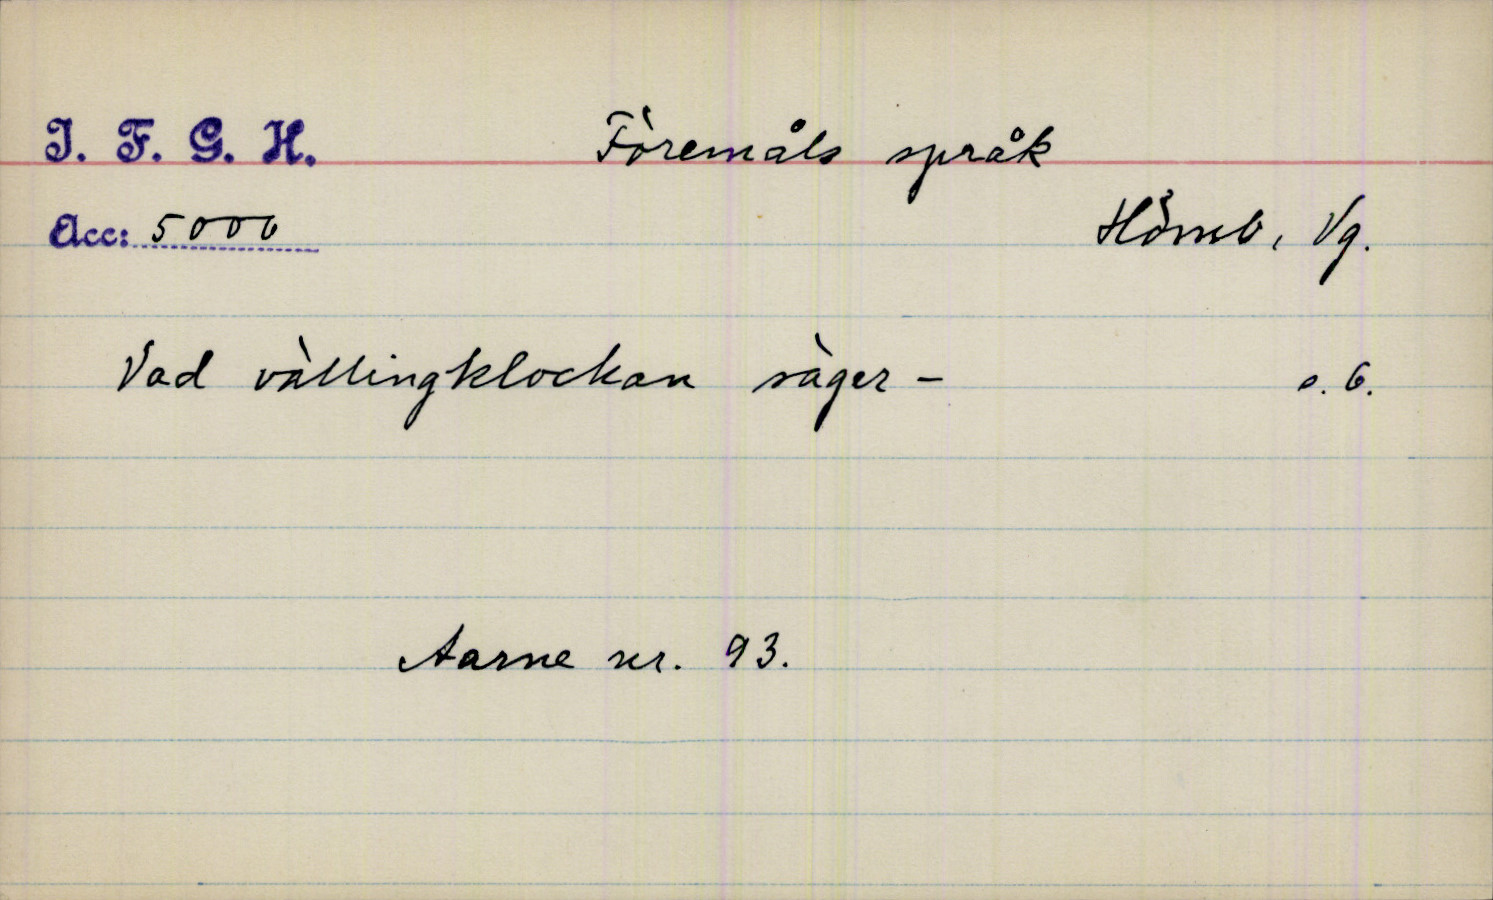 I. F. G. H.
Föremåls språk
Acc: 5000
Hömb, Vg.
Vad vällingklockan säger – s. 6.
Aarne nr. 93.